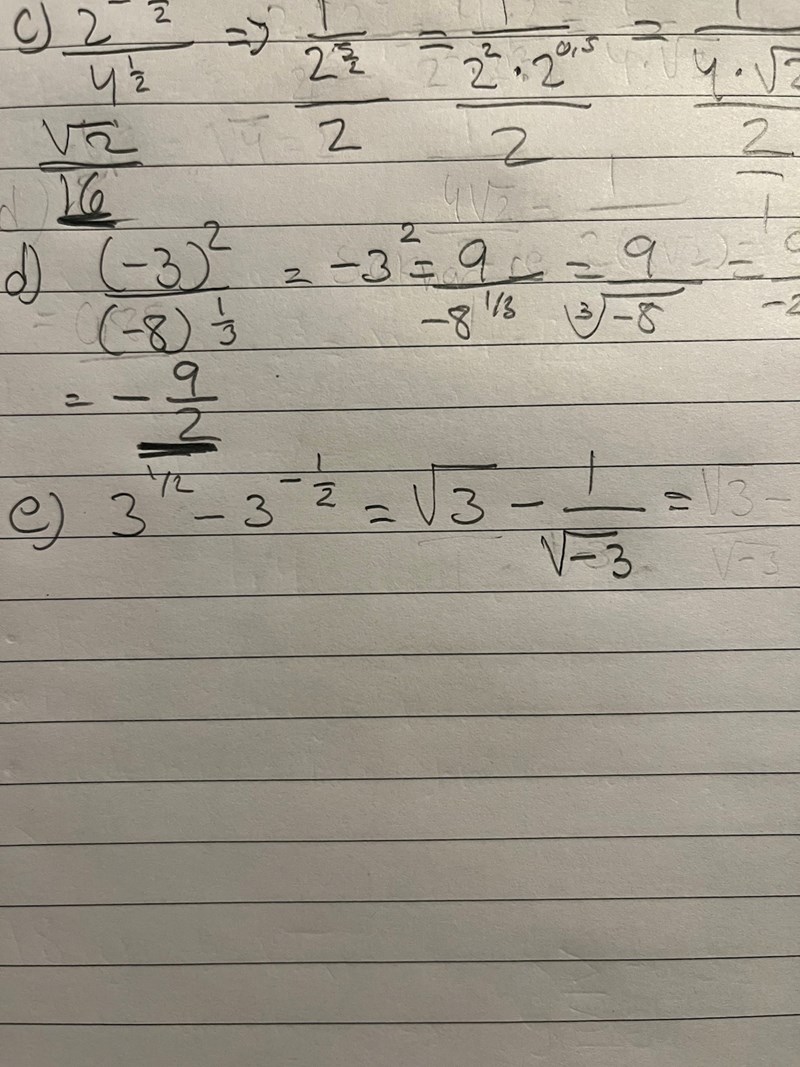 c) 2^-5/2 / 4^1/2 => 1/2^5/2 / 2 = 1/2^2·2^0,5 / 2 = 1/4·√2 / 2
√2/16
d) (-3)^2/(-8)^1/3 = -3^2 = 9/-8^1/3 = 9/∛-8 = 9/-2
= - 9/2
e) 3^1/2 - 3^-1/2 = √3 - 1/√-3 =